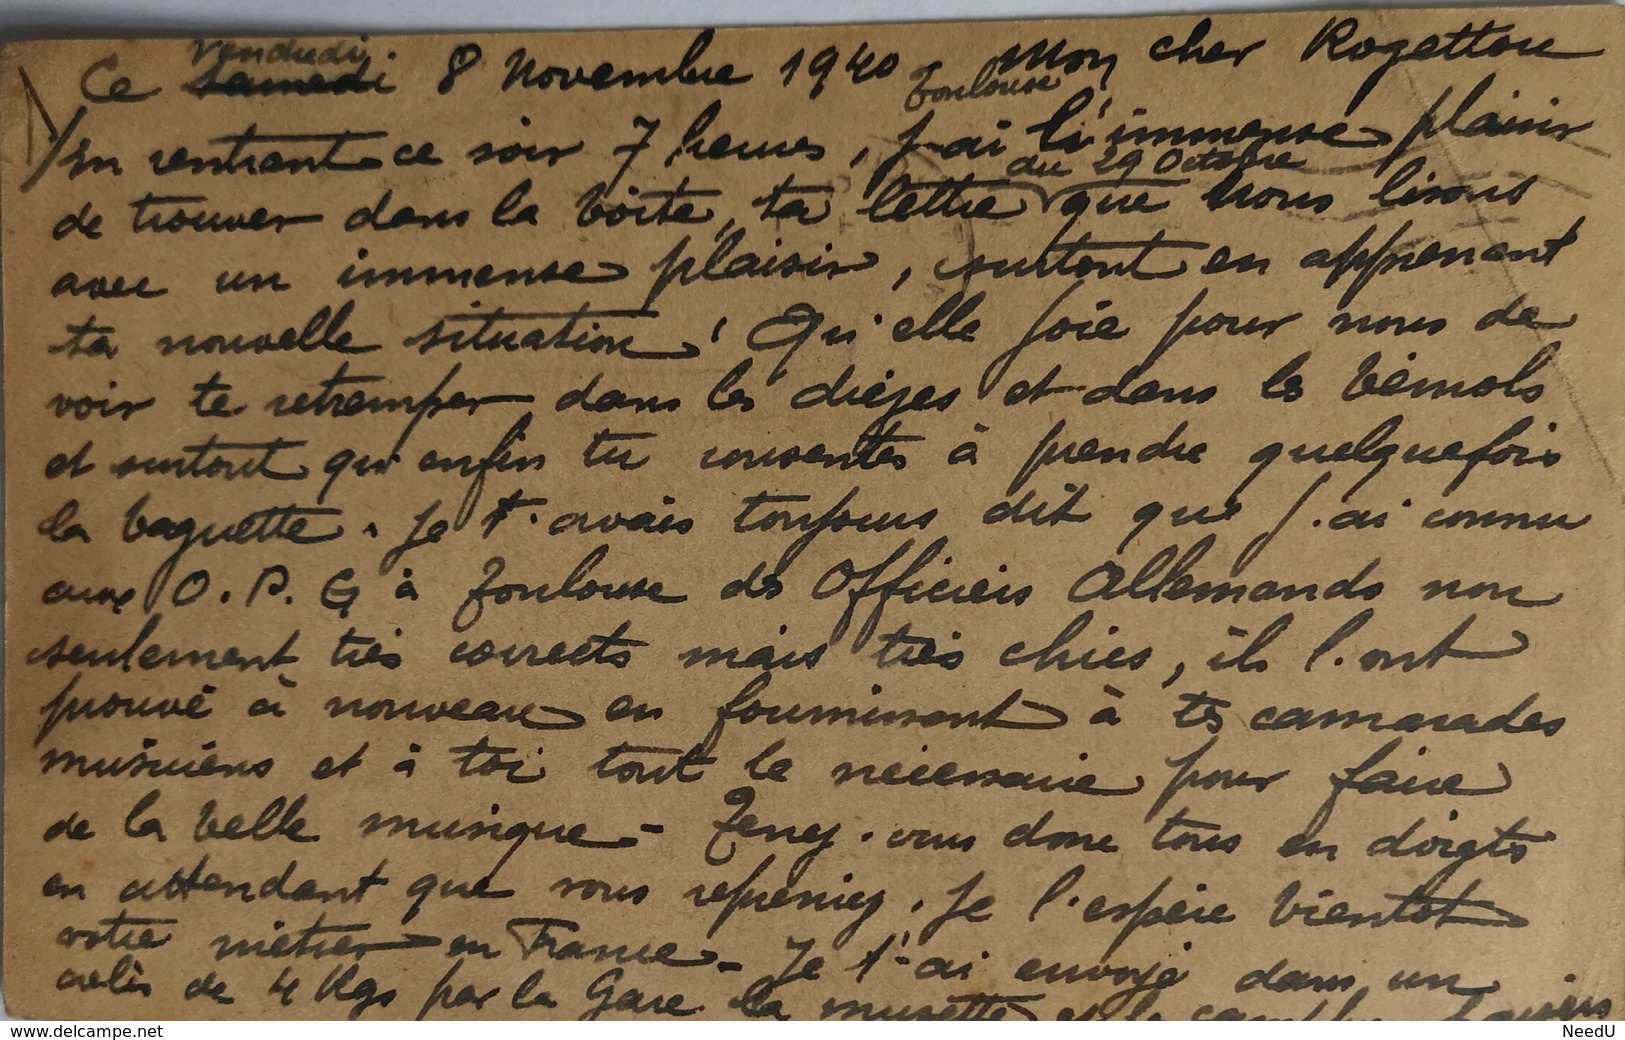 Vendredi
Ce Samedi 8 Novembre 1940 - Mon cher Rogetton
Toulouse
En rentrant ce soir 7 heures, j'ai l'immense plaisir
du 29 Octobre
de trouver dans la boite, ta lettre que nous lisons
avec un immense plaisir, surtout en apprenant
ta nouvelle situation! Qu'elle joie pour nous de
voir te retremper dans les dièzes et dans les bémols
et surtout qu'enfin tu consentes à prendre quelquefois
la baguette. Je t'avais toujours dit que j'ai connu
aux O.P.G à Toulouse des Officiers Allemands non
seulement très corrects mais très chics, ils l'ont
prouvé à nouveau en fournissant à tes camarades
musiciens et à toi tout le nécessaire pour faire
de la belle musique - Tenez-vous donc tous en doigts
en attendant que vous repreniez, je l'espère bientot
votre métier en France - Je t'ai envoyé dans un
colis de 4 Kgs par la Gare la musette et
www.delcampe.net
NeedU